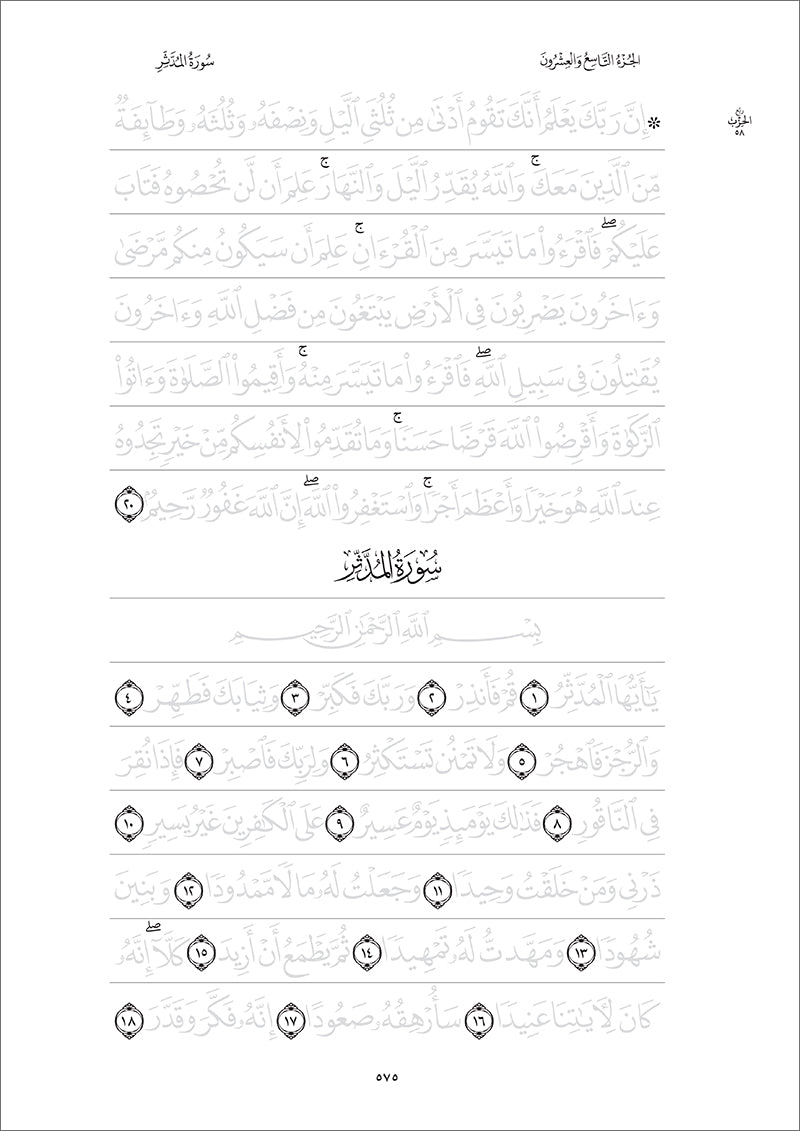 الجُزْءُ التَّاسِعُ وَالعِشْرُونَ
سُورَةُ المُدَّثِّرِ
رُبْع
الحِزْب
٥٨
* إِنَّ رَبَّكَ يَعۡلَمُ أَنَّكَ تَقُومُ أَدۡنَىٰ مِن ثُلُثَيِ ٱلَّيۡلِ وَنِصۡفَهُۥ وَثُلُثَهُۥ وَطَآئِفَةٞ
مِّنَ ٱلَّذِينَ مَعَكَۚ وَٱللَّهُ يُقَدِّرُ ٱلَّيۡلَ وَٱلنَّهَارَۚ عَلِمَ أَن لَّن تُحۡصُوهُ فَتَابَ
عَلَيۡكُمۡۖ فَٱقۡرَءُواْ مَا تَيَسَّرَ مِنَ ٱلۡقُرۡءَانِۚ عَلِمَ أَن سَيَكُونُ مِنكُم مَّرۡضَىٰ
وَءَاخَرُونَ يَضۡرِبُونَ فِي ٱلۡأَرۡضِ يَبۡتَغُونَ مِن فَضۡلِ ٱللَّهِ وَءَاخَرُونَ
يُقَٰتِلُونَ فِي سَبِيلِ ٱللَّهِۖ فَٱقۡرَءُواْ مَا تَيَسَّرَ مِنۡهُۚ وَأَقِيمُواْ ٱلصَّلَوٰةَ وَءَاتُواْ
ٱلزَّكَوٰةَ وَأَقۡرِضُواْ ٱللَّهَ قَرۡضًا حَسَنٗاۚ وَمَا تُقَدِّمُواْ لِأَنفُسِكُم مِّنۡ خَيۡرٖ تَجِدُوهُ
عِندَ ٱللَّهِ هُوَ خَيۡرٗا وَأَعۡظَمَ أَجۡرٗاۚ وَٱسۡتَغۡفِرُواْ ٱللَّهَۖ إِنَّ ٱللَّهَ غَفُورٞ رَّحِيمُۢ ٢٠
سُورَةُ المُدَّثِّرِ
بِسۡمِ ٱللَّهِ ٱلرَّحۡمَٰنِ ٱلرَّحِيمِ
يَٰٓأَيُّهَا ٱلۡمُدَّثِّرُ ١ قُمۡ فَأَنذِرۡ ٢ وَرَبَّكَ فَكَبِّرۡ ٣ وَثِيَابَكَ فَطَهِّرۡ ٤
وَٱلرُّجۡزَ فَٱهۡجُرۡ ٥ وَلَا تَمۡنُن تَسۡتَكۡثِرُ ٦ وَلِرَبِّكَ فَٱصۡبِرۡ ٧ فَإِذَا نُقِرَ
فِي ٱلنَّاقُورِ ٨ فَذَٰلِكَ يَوۡمَئِذٖ يَوۡمٌ عَسِيرٌ ٩ عَلَى ٱلۡكَٰفِرِينَ غَيۡرُ يَسِيرٖ ١٠
ذَرۡنِي وَمَنۡ خَلَقۡتُ وَحِيدٗا ١١ وَجَعَلۡتُ لَهُۥ مَالٗا مَّمۡدُودٗا ١٢ وَبَنِينَ
شُهُودٗا ١٣ وَمَهَّدتُّ لَهُۥ تَمۡهِيدٗا ١٤ ثُمَّ يَطۡمَعُ أَنۡ أَزِيدَ ١٥ كَلَّآۖ إِنَّهُۥ
كَانَ لِأٓيَٰتِنَا عَنِيدٗا ١٦ سَأُرۡهِقُهُۥ صَعُودًا ١٧ إِنَّهُۥ فَكَّرَ وَقَدَّرَ ١٨
٥٧٥